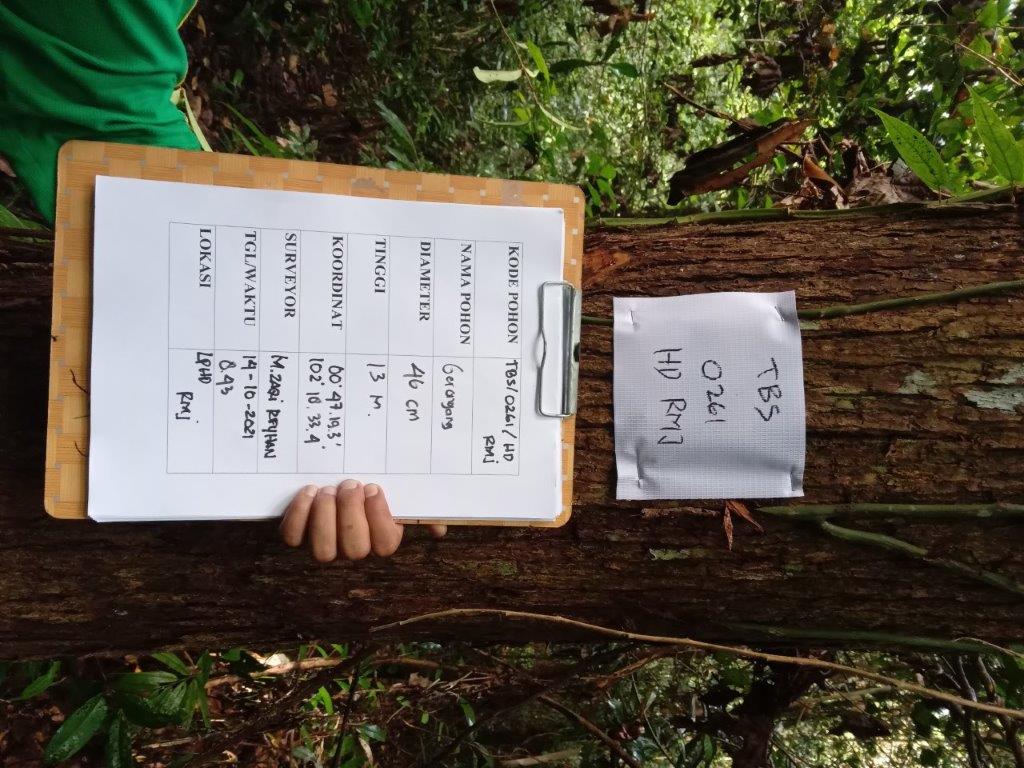 TBS
0261
HD RMJ
KODE POHON TBS/0261/HD
RMJ
NAMA POHON Gerongang
DIAMETER 46 cm
TINGGI 13 M.
KOORDINAT 00°47.19.3'
102°18.33.4'
SURVEYOR M.ZAQI REYHAN
TGL/WAKTU 14-10-2021
8.43
LOKASI LPHD
RMJ